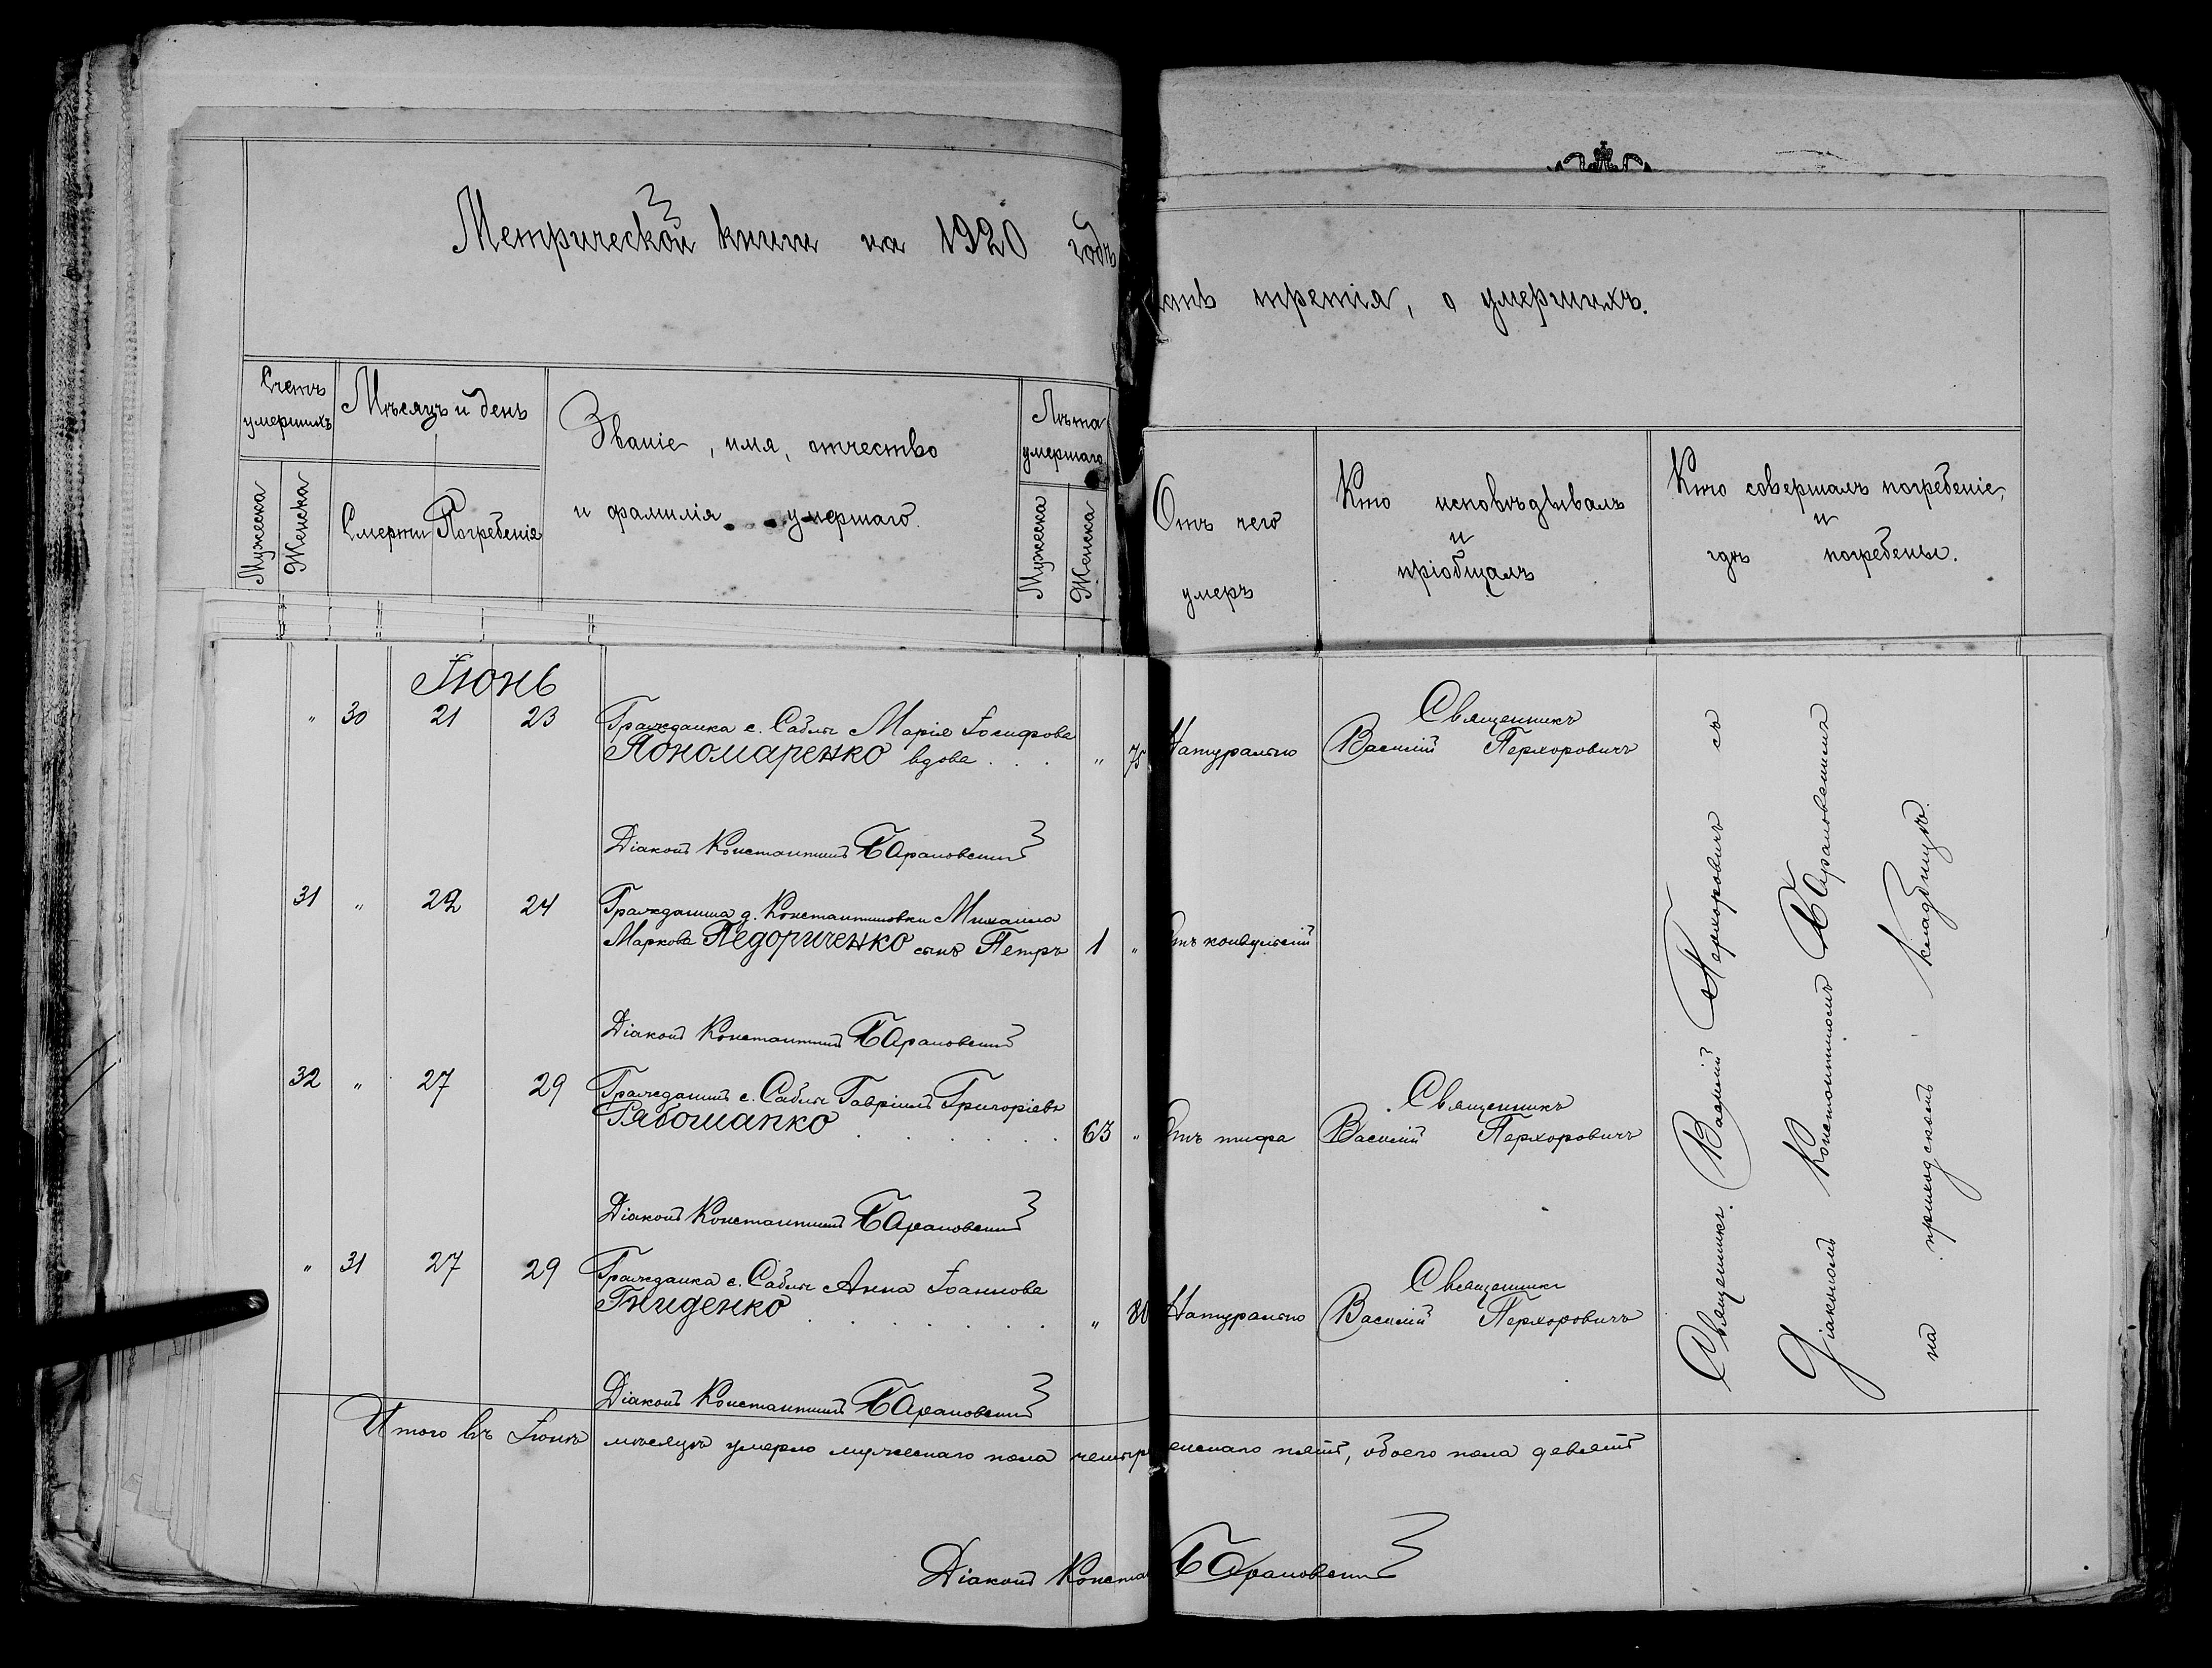 Метрической книги на 1920 годъ
третія, о умершихъ.
Счетъ умершихъ
Мужеска
Женска
Мѣсяцъ и день
Смерти
Погребенія
Званіе, имя, отчество
и фамилія умершаго.
Лѣта умершаго
Мужеска
Женска
Отъ чего
умеръ
Кто исповѣдывалъ
и
пріобщалъ
Кто совершалъ погребеніе,
и
гдѣ погребены.
Іюнь
" 30 21 23 Гражданка с. Саблы Марія Іосифова
Пономаренко вдова . . . " 75 Натурально
Священникъ
Василій Перхоровичъ
Діаконъ Константинъ Барановскій
31 " 22 24 Гражданина д. Константиновки Михаила
Маркова Педориченко сынъ Петръ 1 " Отъ конвульсій
Діаконъ Константинъ Барановскій
32 " 27 29 Гражданинъ с. Саблы Гавріилъ Григоріевъ
Рябошапко 63 " Отъ тифа
Священникъ
Василій Перхоровичъ
Діаконъ Константинъ Барановскій
" 31 27 29 Гражданка с. Саблы Анна Іоаннова
Гниденко " 80 Натурально
Священникъ
Василій Перхоровичъ
Діаконъ Константинъ Барановскій
Священникъ Василій Перхоровичъ съ
Діакономъ Константиномъ Барановскимъ
на приходскомъ кладбищѣ.
Итого въ Іюнѣ мѣсяцѣ умерло мужескаго пола четыре енскаго пять, обоего пола девять
Діаконъ Конста Барановскій